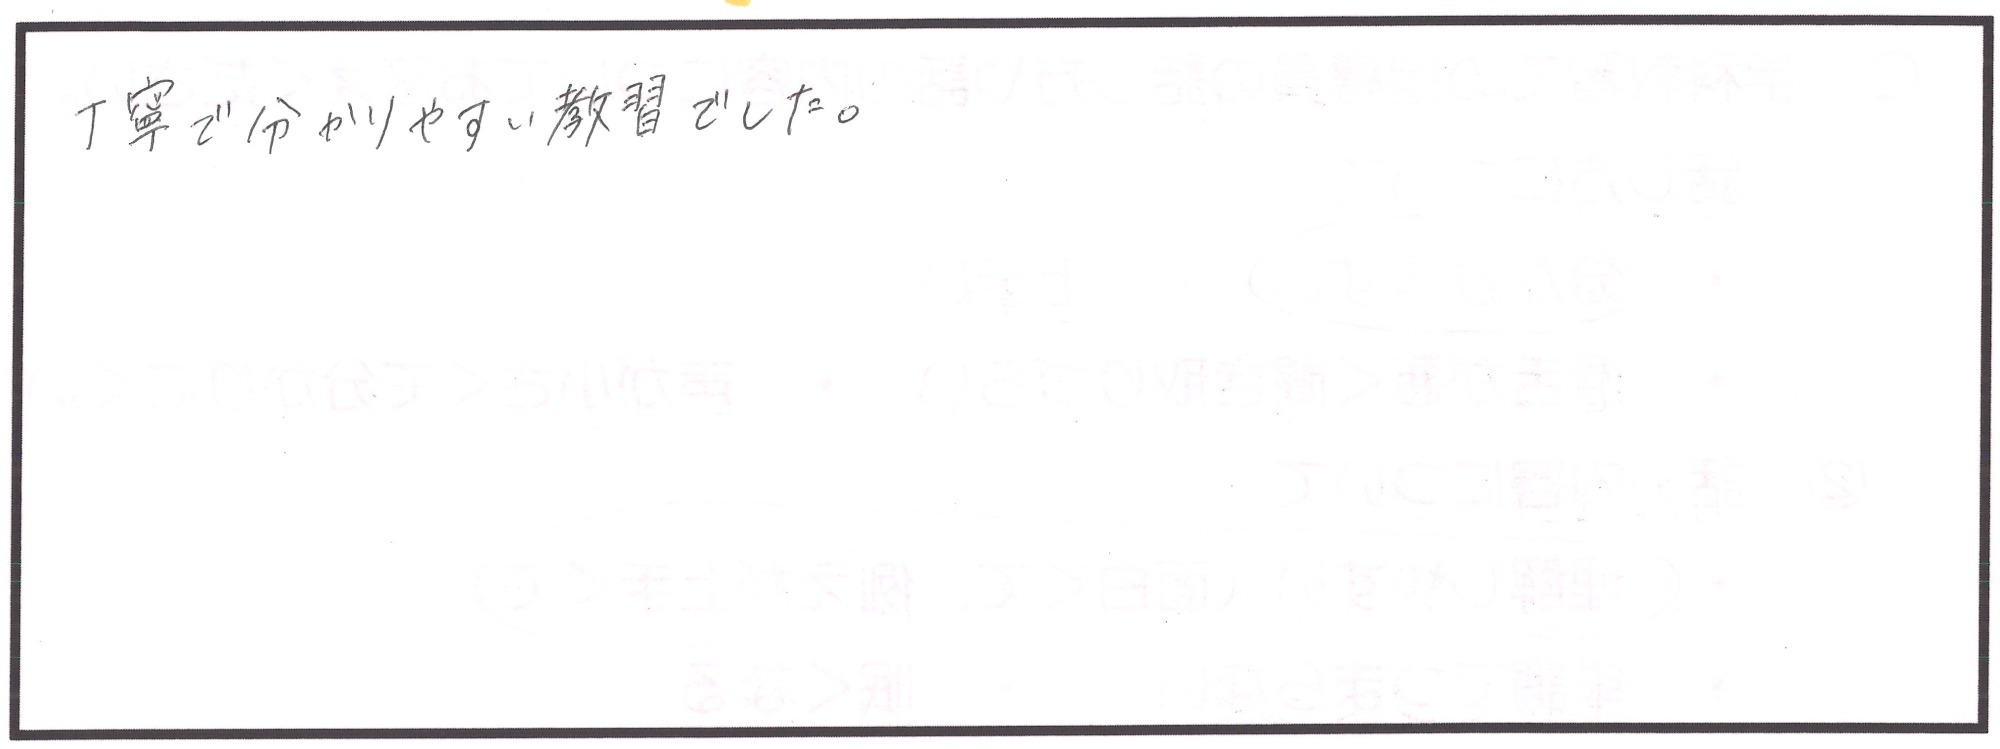 丁寧で分かりやすい教習でした。